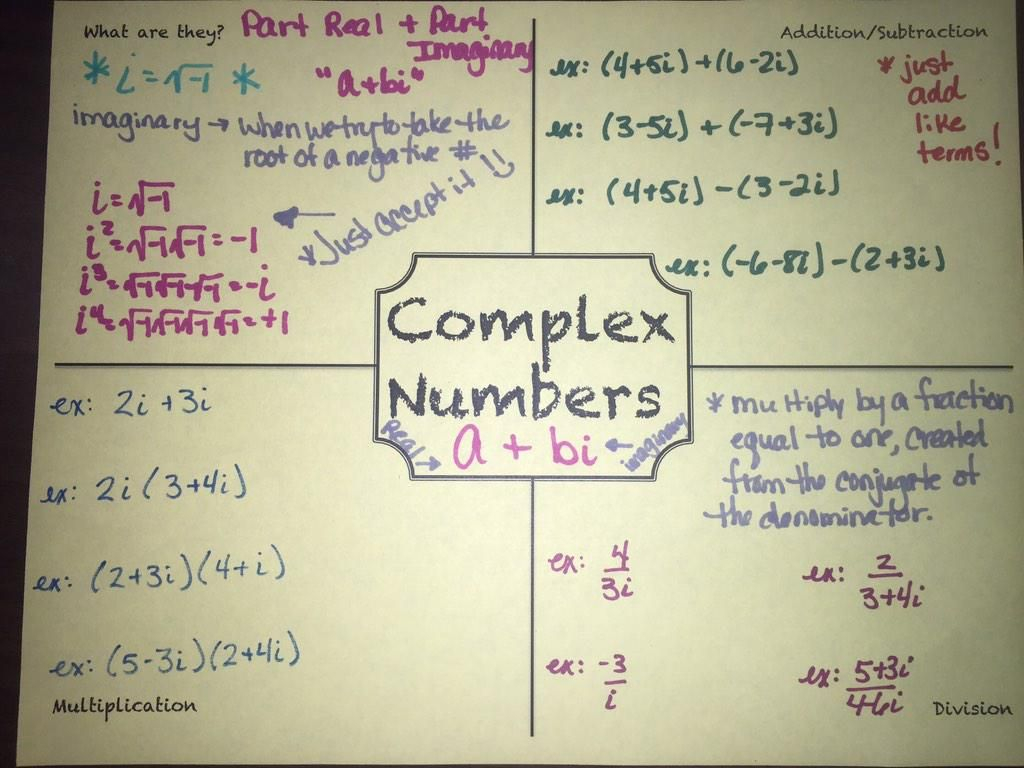 What are they? Part Real + Part
Imaginary
* i = √-1 * "a+bi"
imaginary → when we try to take the
root of a negative #
*Just accept it
i = √-1
i² = √-1√-1 = -1
i³ = √-1√-1√-1 = -i
i⁴ = √-1√-1√-1√-1 = +1
Addition/Subtraction
ex: (4+5i)+(6-2i)
ex: (3-5i) + (-7+3i)
ex: (4+5i) -(3-2i)
ex: (-6-8i)-(2+3i)
* just
add
like
terms!
Complex
Numbers
real → a + bi ← imaginary
ex: 2i +3i
ex: 2i (3+4i)
ex: (2+3i)(4+i)
ex: (5-3i)(2+4i)
Multiplication
* multiply by a fraction
equal to one, created
from the conjugate of
the denominator.
ex: 4/3i ex: 2/3+4i
ex: -3/i ex: 5+3i/4-6i
Division